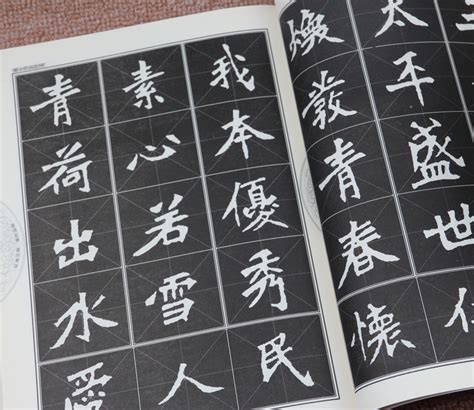 我本優秀民
素心若雪人
青荷出水愛
太平盛世
煥發青春懷